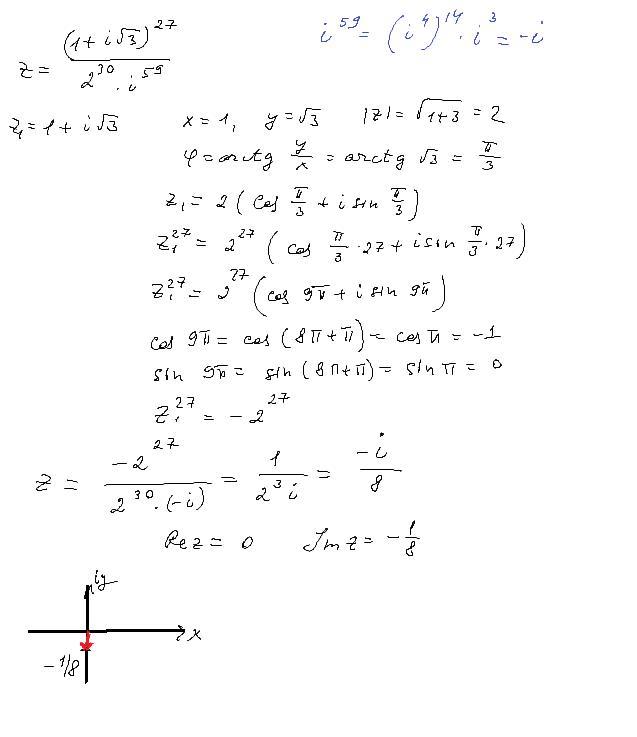 z = (1 + i√3)^27 / (2^30 · i^59)
i^59 = (i^4)^14 · i^3 = -i
z₁ = 1 + i√3   x = 1,   y = √3   |z| = √(1+3) = 2
φ = arctg y/x = arctg √3 = π/3
z₁ = 2 (cos π/3 + i sin π/3)
z₁^27 = 2^27 (cos π/3 · 27 + i sin π/3 · 27)
z₁^27 = 2^27 (cos 9π + i sin 9π)
cos 9π = cos (8π + π) = cos π = -1
sin 9π = sin (8π + π) = sin π = 0
z₁^27 = -2^27
z = -2^27 / (2^30 · (-i)) = 1 / (2^3 i) = -i / 8
Re z = 0   Im z = -1/8
iy
x
-1/8